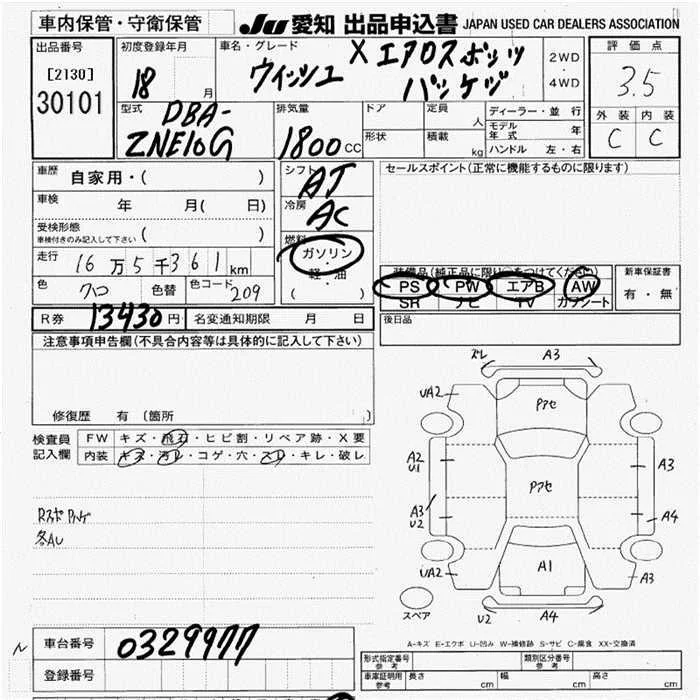 車内保管・守衛保管 JU 愛知 出品申込書 JAPAN USED CAR DEALERS ASSOCIATION
出品番号 初度登録年月 車名・グレード 2WD ・ 4WD 評価点
[2130]
30101
18 月
ウィッシュ X エアロスポーツ
パッケジ
3.5
外装 内装
C C
型式 DBA-
ZNE10G
排気量 1800 CC
ドア 定員 人
形状 積載 kg
ディーラー・並行
モデル年式 年
ハンドル 左・右
車歴 自家用・( )
車検 年 月( 日)
受検形態 ( )
車検付きのみ記入して下さい
走行 16万5千361km
色 色替 色コード 209
シフト AT
冷房 AC
燃料 ガソリン
・
軽・油
( )
セールスポイント(正常に機能するものに限ります)
装備品(純正品に限り○をつけてください)
PS PW エアB AW
SR ナビ TV カワシート
新車保証書
有・無
R券 13430円 名変通知期限 月 日
後日品
注意事項申告欄(不具合内容等は具体的に記入して下さい)
修復歴 有 (箇所 )
検査員記入欄
FW キズ・飛石・ヒビ割・リペア跡・X要
内装 キズ・汚レ・コゲ・穴・スレ・キレ・破レ
各AU
ズレ A3
UA2 Pアセ
A2
U1
Pアセ A3
A3
U2
A4
UA2 A1 A3
スペア U2 A4
A-キズ E-エクボ U-凹み W-補修跡 S-サビ C-腐食 XX-交換済
車台番号 0329977
登録番号
形式指定番号 参考 類別区分番号 参考
車庫証明用 参考 長さ cm 幅 cm 高さ cm